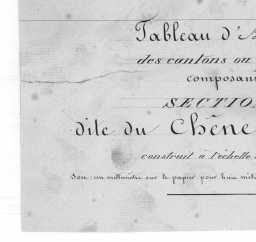 Tableau d'A
des cantons ou
composan
SECTION
dite du Chêne
construit à l'échelle
Soit: un millimètre sur le papier pour huit mèt